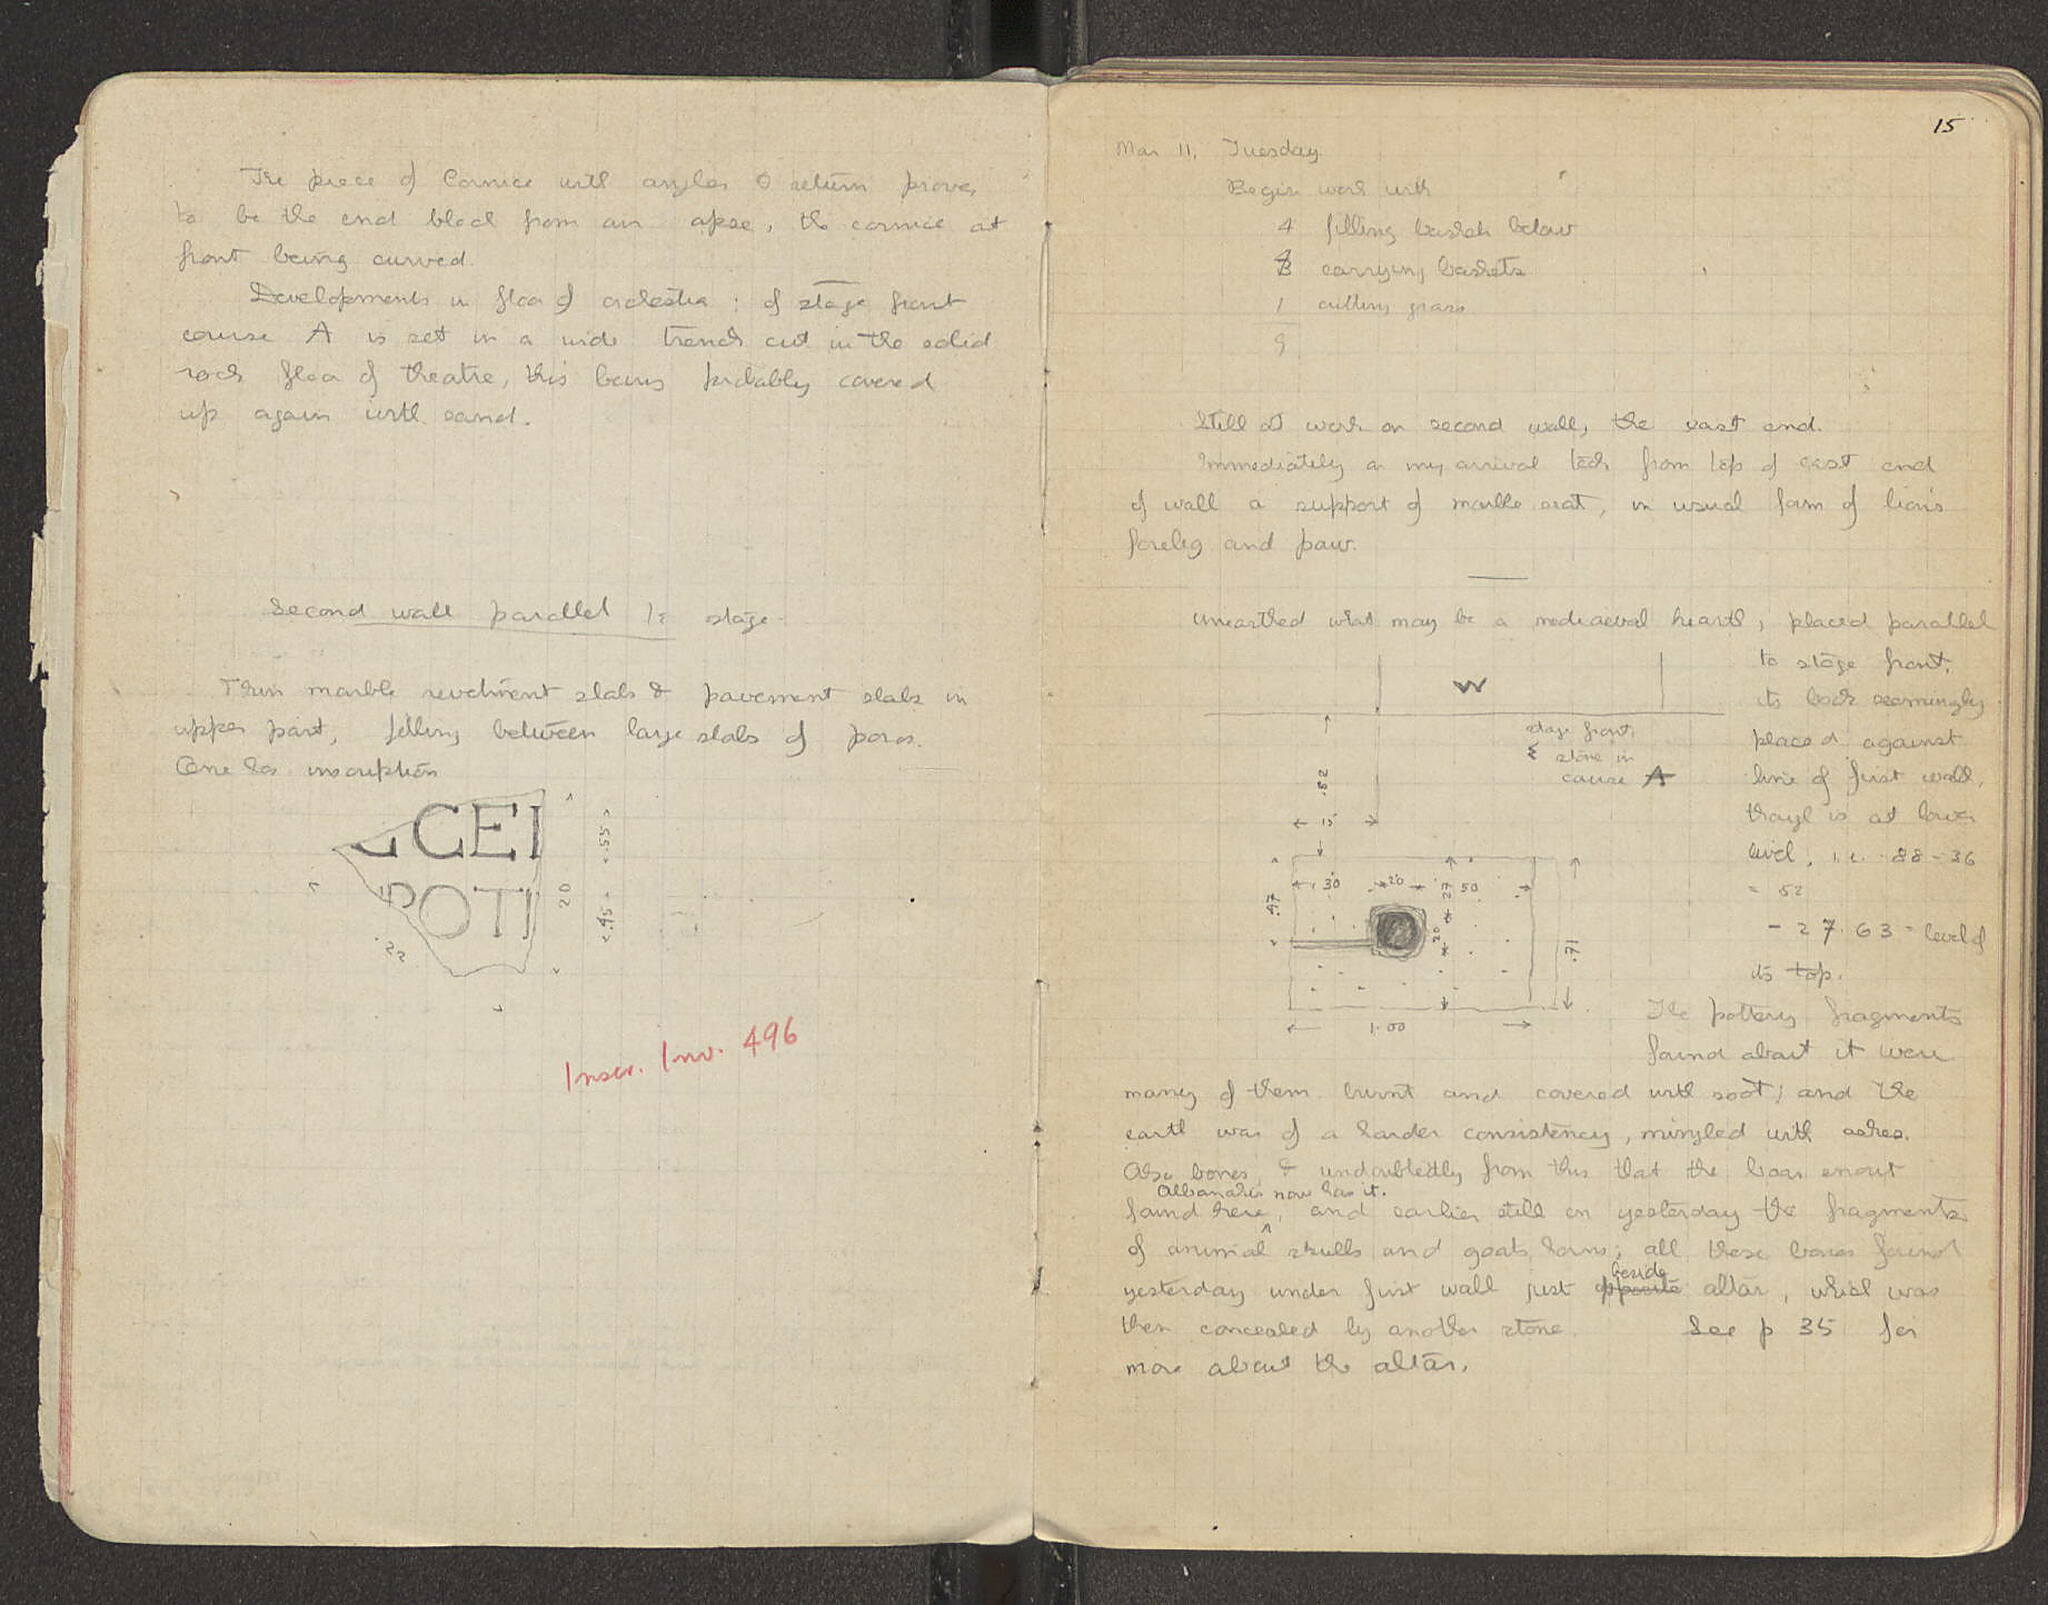 The piece of Cornice with angles & return proves
to be the end block from an apse, the cornice at
front being curved.
Developments in floor of orchestra: of stage front
course A is set in a wide trench cut in the solid
rock floor of theatre, this being probably covered
up again with sand.
Second wall parallel to stage.
Thin marble revetment slabs & pavement slabs in
upper part, filling between large slabs of poros.
One has inscription
CEI
POTI
.55
20
.45
.22
Inscr. Inv. 496
15
Mar 11, Tuesday.
Begin work with
4 filling baskets below
carrying baskets
1 cutting grass
9
Still at work on second wall, the east end.
Immediately on my arrival took from top of east end
of wall a support of marble seat, in usual form of lion's
foreleg and paw.
Unearthed what may be a mediaeval hearth, placed parallel
to stage front,
its back seemingly
placed against
line of first wall,
though is at lower
level, i.e. .88 - 36
= 52
- 27.63 = level of
its top.
W
stage front,
stone in
course A
.82
15
.47
.30
20
27
50
20
.71
1.00
The pottery fragments
found about it were
many of them burnt and covered with soot, and the
earth was of a harder consistency, mingled with ashes.
Also bones, & undoubtedly from this that the boar snout
Albanakis now has it.
found here, and earlier still on yesterday the fragments
of animal skulls and goats horns; all these bones found
yesterday under first wall just opposite beside altar, which was
then concealed by another stone. See p 35 for
more about the altar.